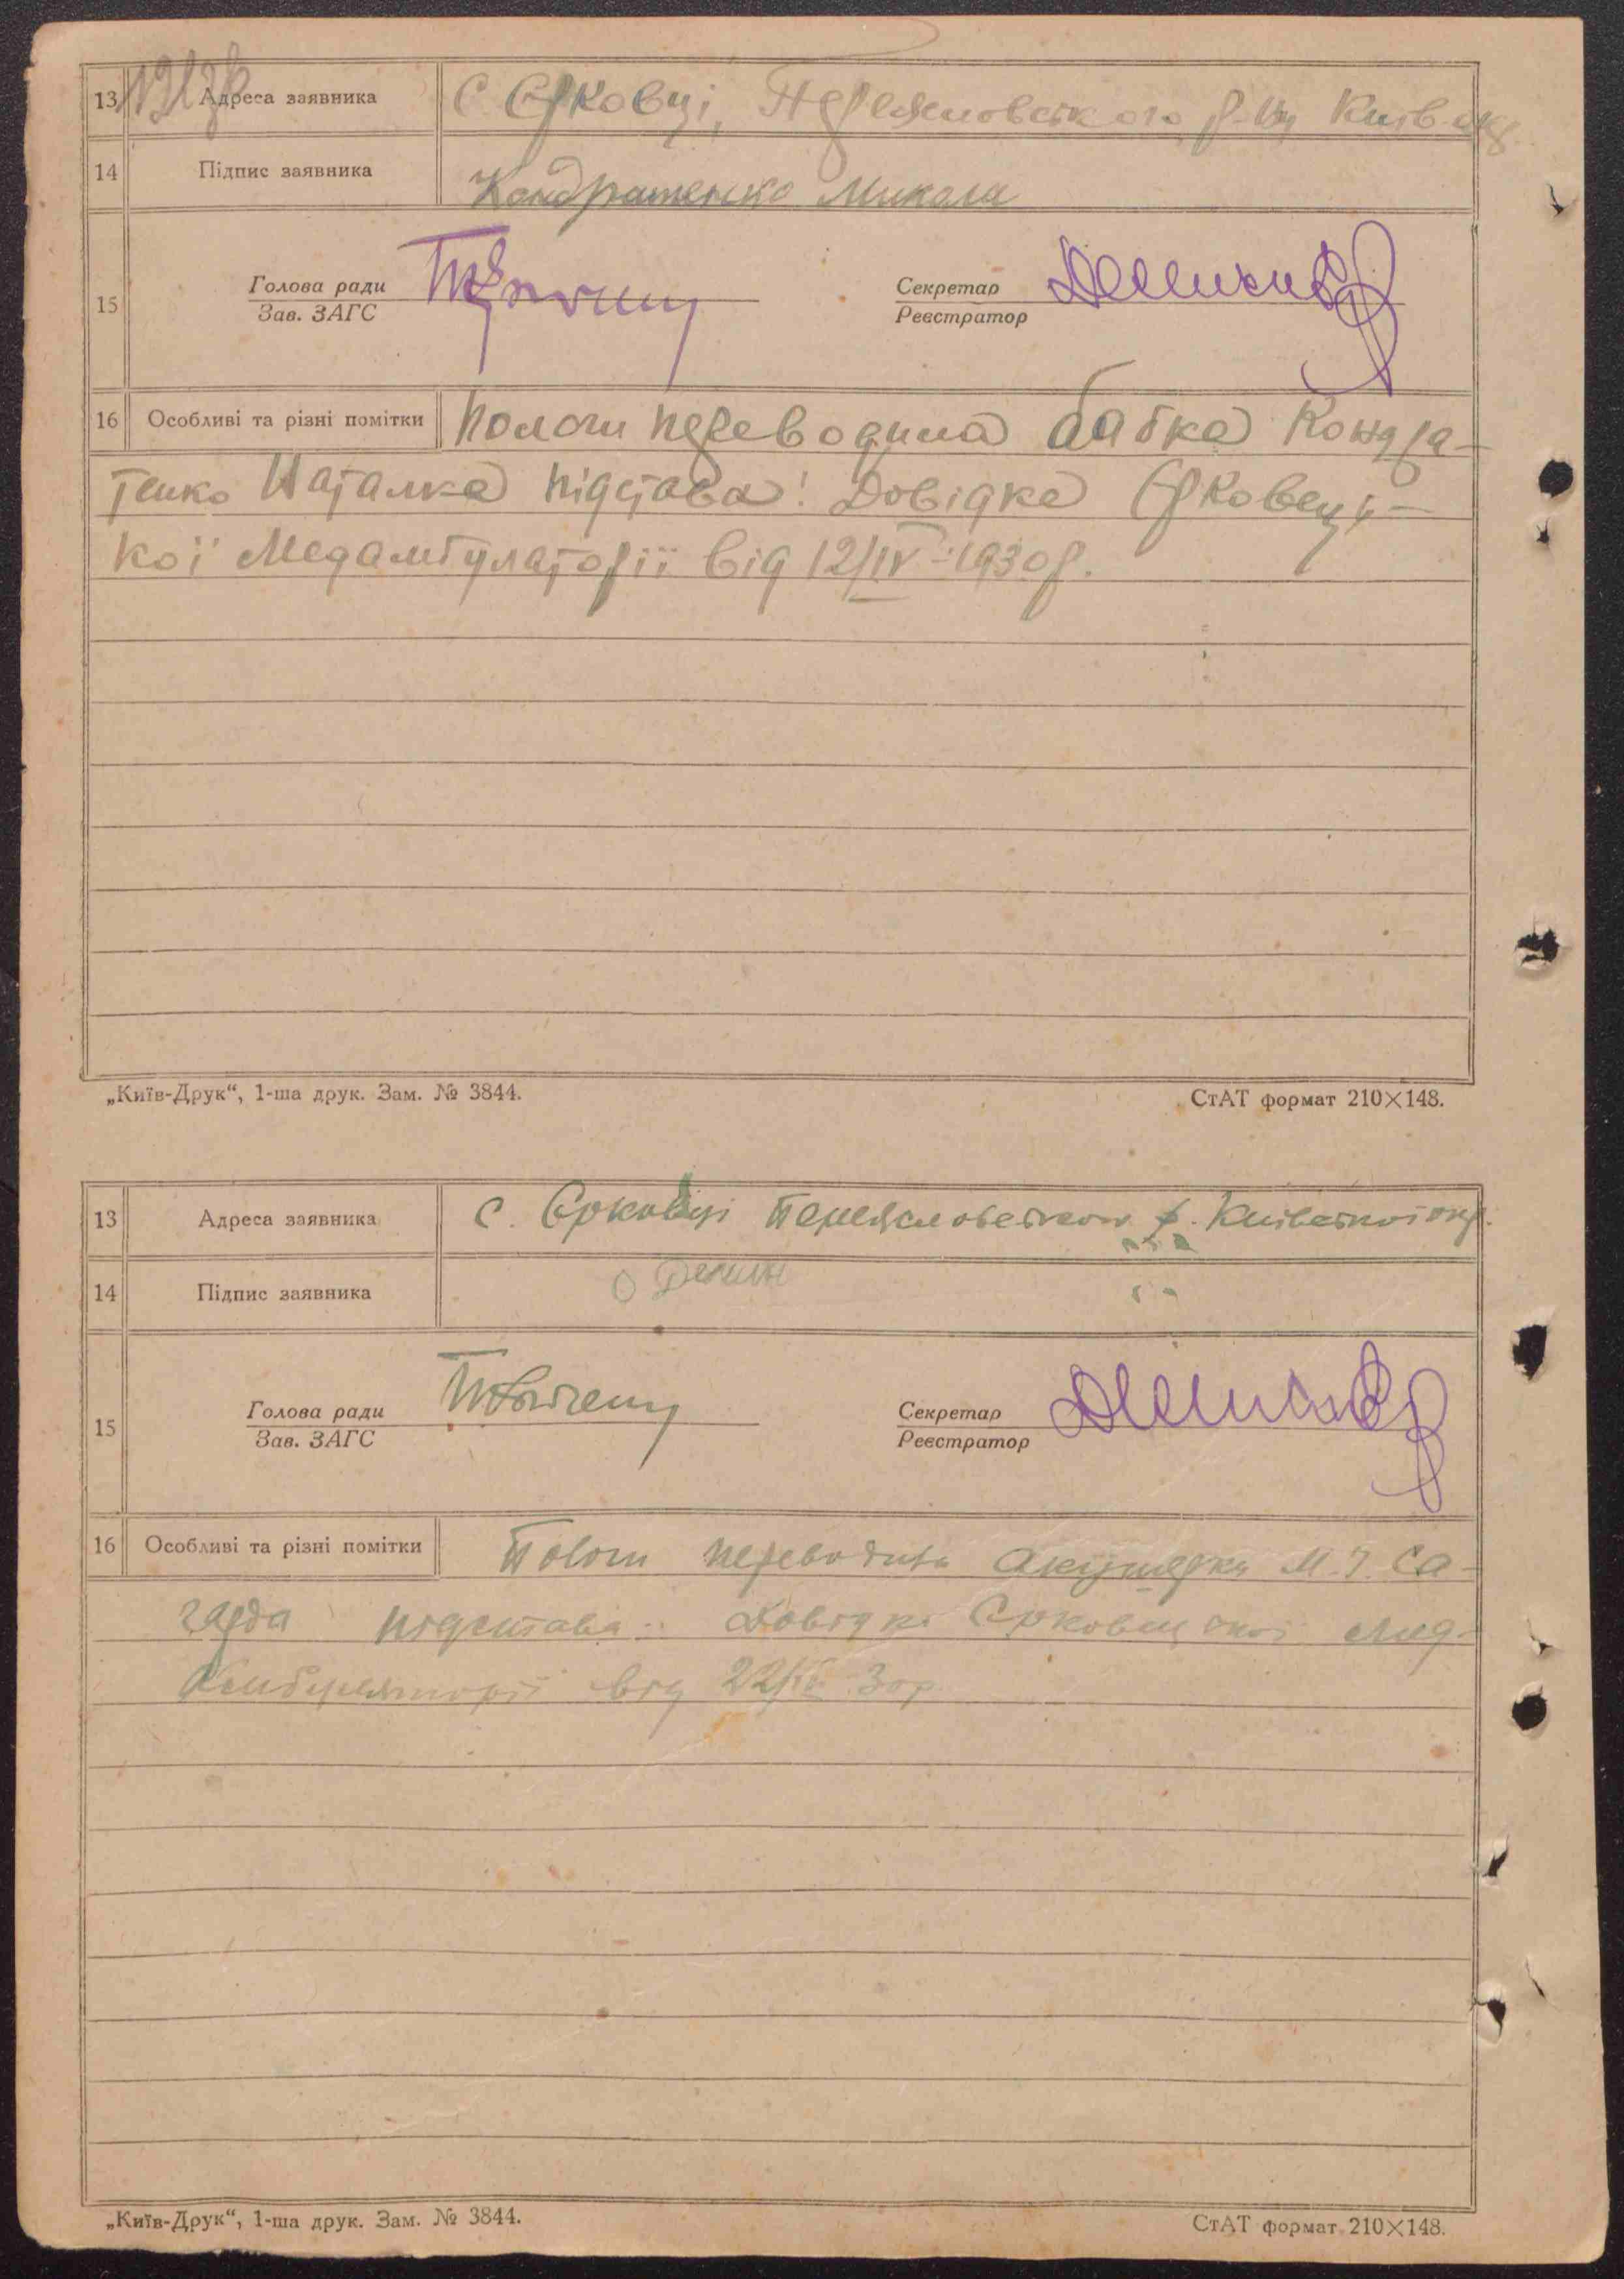 13 Адреса заявника С. Єрковці, Переяславського р-ну Київ. окр.
14 Підпис заявника Кондратенко Микола
15 Голова ради Секретар
Зав. ЗАГС Реєстратор
16 Особливі та різні помітки Пологи переводила бабка Кондра-
тенко Наталка підстава: Довідка Єрковець-
кої Медамбулаторії від 12/IV-1930р.
„Київ-Друк“, 1-ша друк. Зам. № 3844. СтАТ формат 210×148.
13 Адреса заявника с. Єрковці Переяславського р. Київської окр.
14 Підпис заявника
15 Голова ради Секретар
Зав. ЗАГС Реєстратор
16 Особливі та різні помітки Пологи переводила акушерка М. І. Са-
гарда підстава: Довідка Єрковецької Мед-
амбуляторії від 22/IV 30р.
„Київ-Друк“, 1-ша друк. Зам. № 3844. СтАТ формат 210×148.